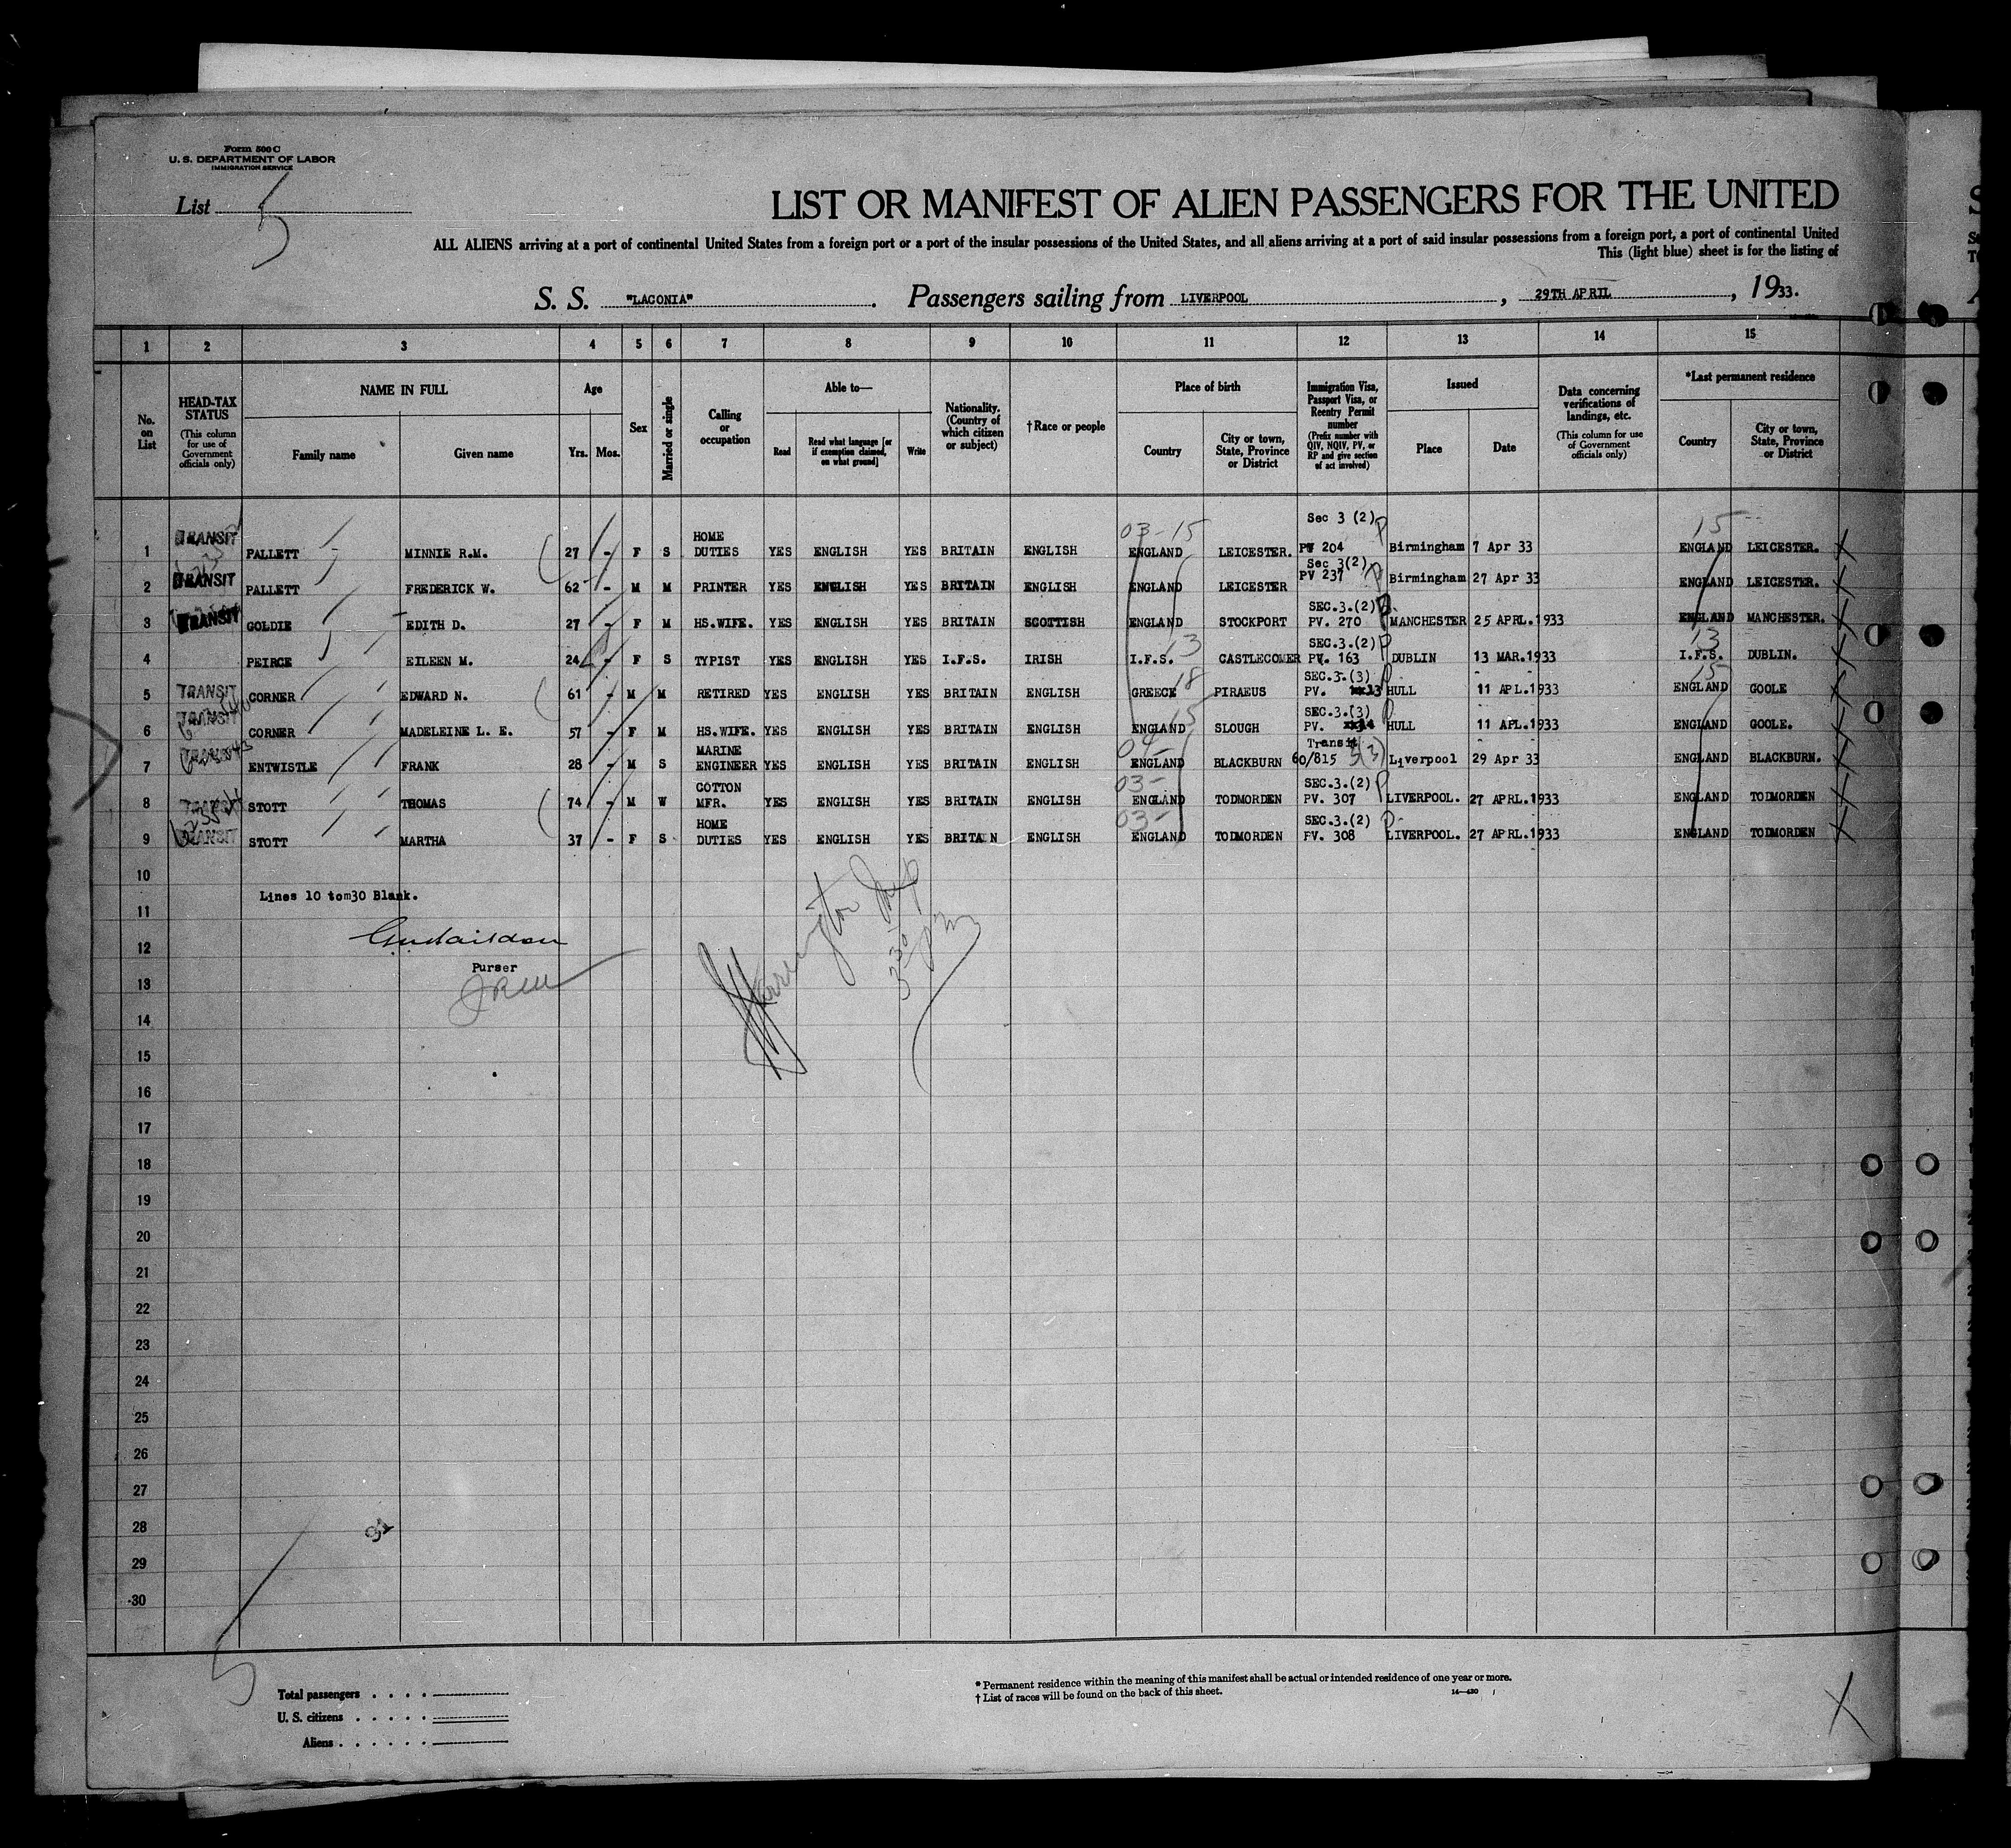 Form 500 C
U. S. DEPARTMENT OF LABOR
IMMIGRATION SERVICE
List 5
LIST OR MANIFEST OF ALIEN PASSENGERS FOR THE UNITED
ALL ALIENS arriving at a port of continental United States from a foreign port or a port of the insular possessions of the United States, and all aliens arriving at a port of said insular possessions from a foreign port, a port of continental United
This (light blue) sheet is for the listing of
S. S. "LACONIA". Passengers sailing from LIVERPOOL, 29TH APRIL, 1933.
1 2 3 4 5 6 7 8 9 10 11 12 13 14 15
No. on List
HEAD-TAX STATUS (This column for use of Government officials only)
NAME IN FULL Family name Given name
Age Yrs. Mos.
Sex
Married or single
Calling or occupation
Able to— Read Read what language [or if exemption claimed, on what ground] Write
Nationality. (Country of which citizen or subject)
†Race or people
Place of birth Country City or town, State, Province or District
Immigration Visa, Passport Visa, or Reentry Permit number (Prefix number with QIV, NQIV, PV, or RP and give section of act involved)
Issued Place Date
Data concerning verifications of landings, etc. (This column for use of Government officials only)
*Last permanent residence Country City or town, State, Province or District
03-15 Sec 3 (2) 15
1 TRANSIT PALLETT MINNIE R.M. 27 - F S HOME DUTIES YES ENGLISH YES BRITAIN ENGLISH ENGLAND LEICESTER. PV 204 Birmingham 7 Apr 33 ENGLAND LEICESTER.
2 TRANSIT PALLETT FREDERICK W. 62 - M M PRINTER YES ENGLISH YES BRITAIN ENGLISH ENGLAND LEICESTER Sec 3(2) PV 237 Birmingham 27 Apr 33 ENGLAND LEICESTER.
3 TRANSIT GOLDIE EDITH D. 27 - F M HS.WIFE. YES ENGLISH YES BRITAIN SCOTTISH ENGLAND STOCKPORT SEC.3.(2) PV. 270 MANCHESTER 25 APRL.1933 ENGLAND MANCHESTER.
4 PEIRCE EILEEN M. 24 - F S TYPIST YES ENGLISH YES I.F.S. IRISH I.F.S. 13 CASTLECOMER SEC.3.(2) PV. 163 DUBLIN 13 MAR.1933 13 I.F.S. DUBLIN.
5 TRANSIT CORNER EDWARD N. 61 - M M RETIRED YES ENGLISH YES BRITAIN ENGLISH GREECE 18 PIRAEUS SEC.3.(3) PV. xx13 HULL 11 APL.1933 15 ENGLAND GOOLE
6 TRANSIT CORNER MADELEINE L. E. 57 - F M HS.WIFE. YES ENGLISH YES BRITAIN ENGLISH ENGLAND 15 SLOUGH SEC.3.(3) PV. xx14 HULL 11 APL.1933 ENGLAND GOOLE.
7 TRANSIT ENTWISTLE FRANK 28 - M S MARINE ENGINEER YES ENGLISH YES BRITAIN ENGLISH 04- ENGLAND BLACKBURN Transit 60/815 3(3) Liverpool 29 Apr 33 ENGLAND BLACKBURN.
8 TRANSIT STOTT THOMAS 74 - M W COTTON MFR. YES ENGLISH YES BRITAIN ENGLISH 03- ENGLAND TODMORDEN SEC.3.(2) PV. 307 LIVERPOOL. 27 APRL.1933 ENGLAND TODMORDEN
9 TRANSIT STOTT MARTHA 37 - F S HOME DUTIES YES ENGLISH YES BRITAIN ENGLISH 03- ENGLAND TODMORDEN SEC.3.(2) PV. 308 LIVERPOOL. 27 APRL.1933 ENGLAND TODMORDEN
10
Lines 10 tom30 Blank.
11
12
Purser
13
14
15
16
17
18
19
20
21
22
23
24
25
26
27
28
29
30
Total passengers
U. S. citizens
Aliens
* Permanent residence within the meaning of this manifest shall be actual or intended residence of one year or more.
† List of races will be found on the back of this sheet.
14—430